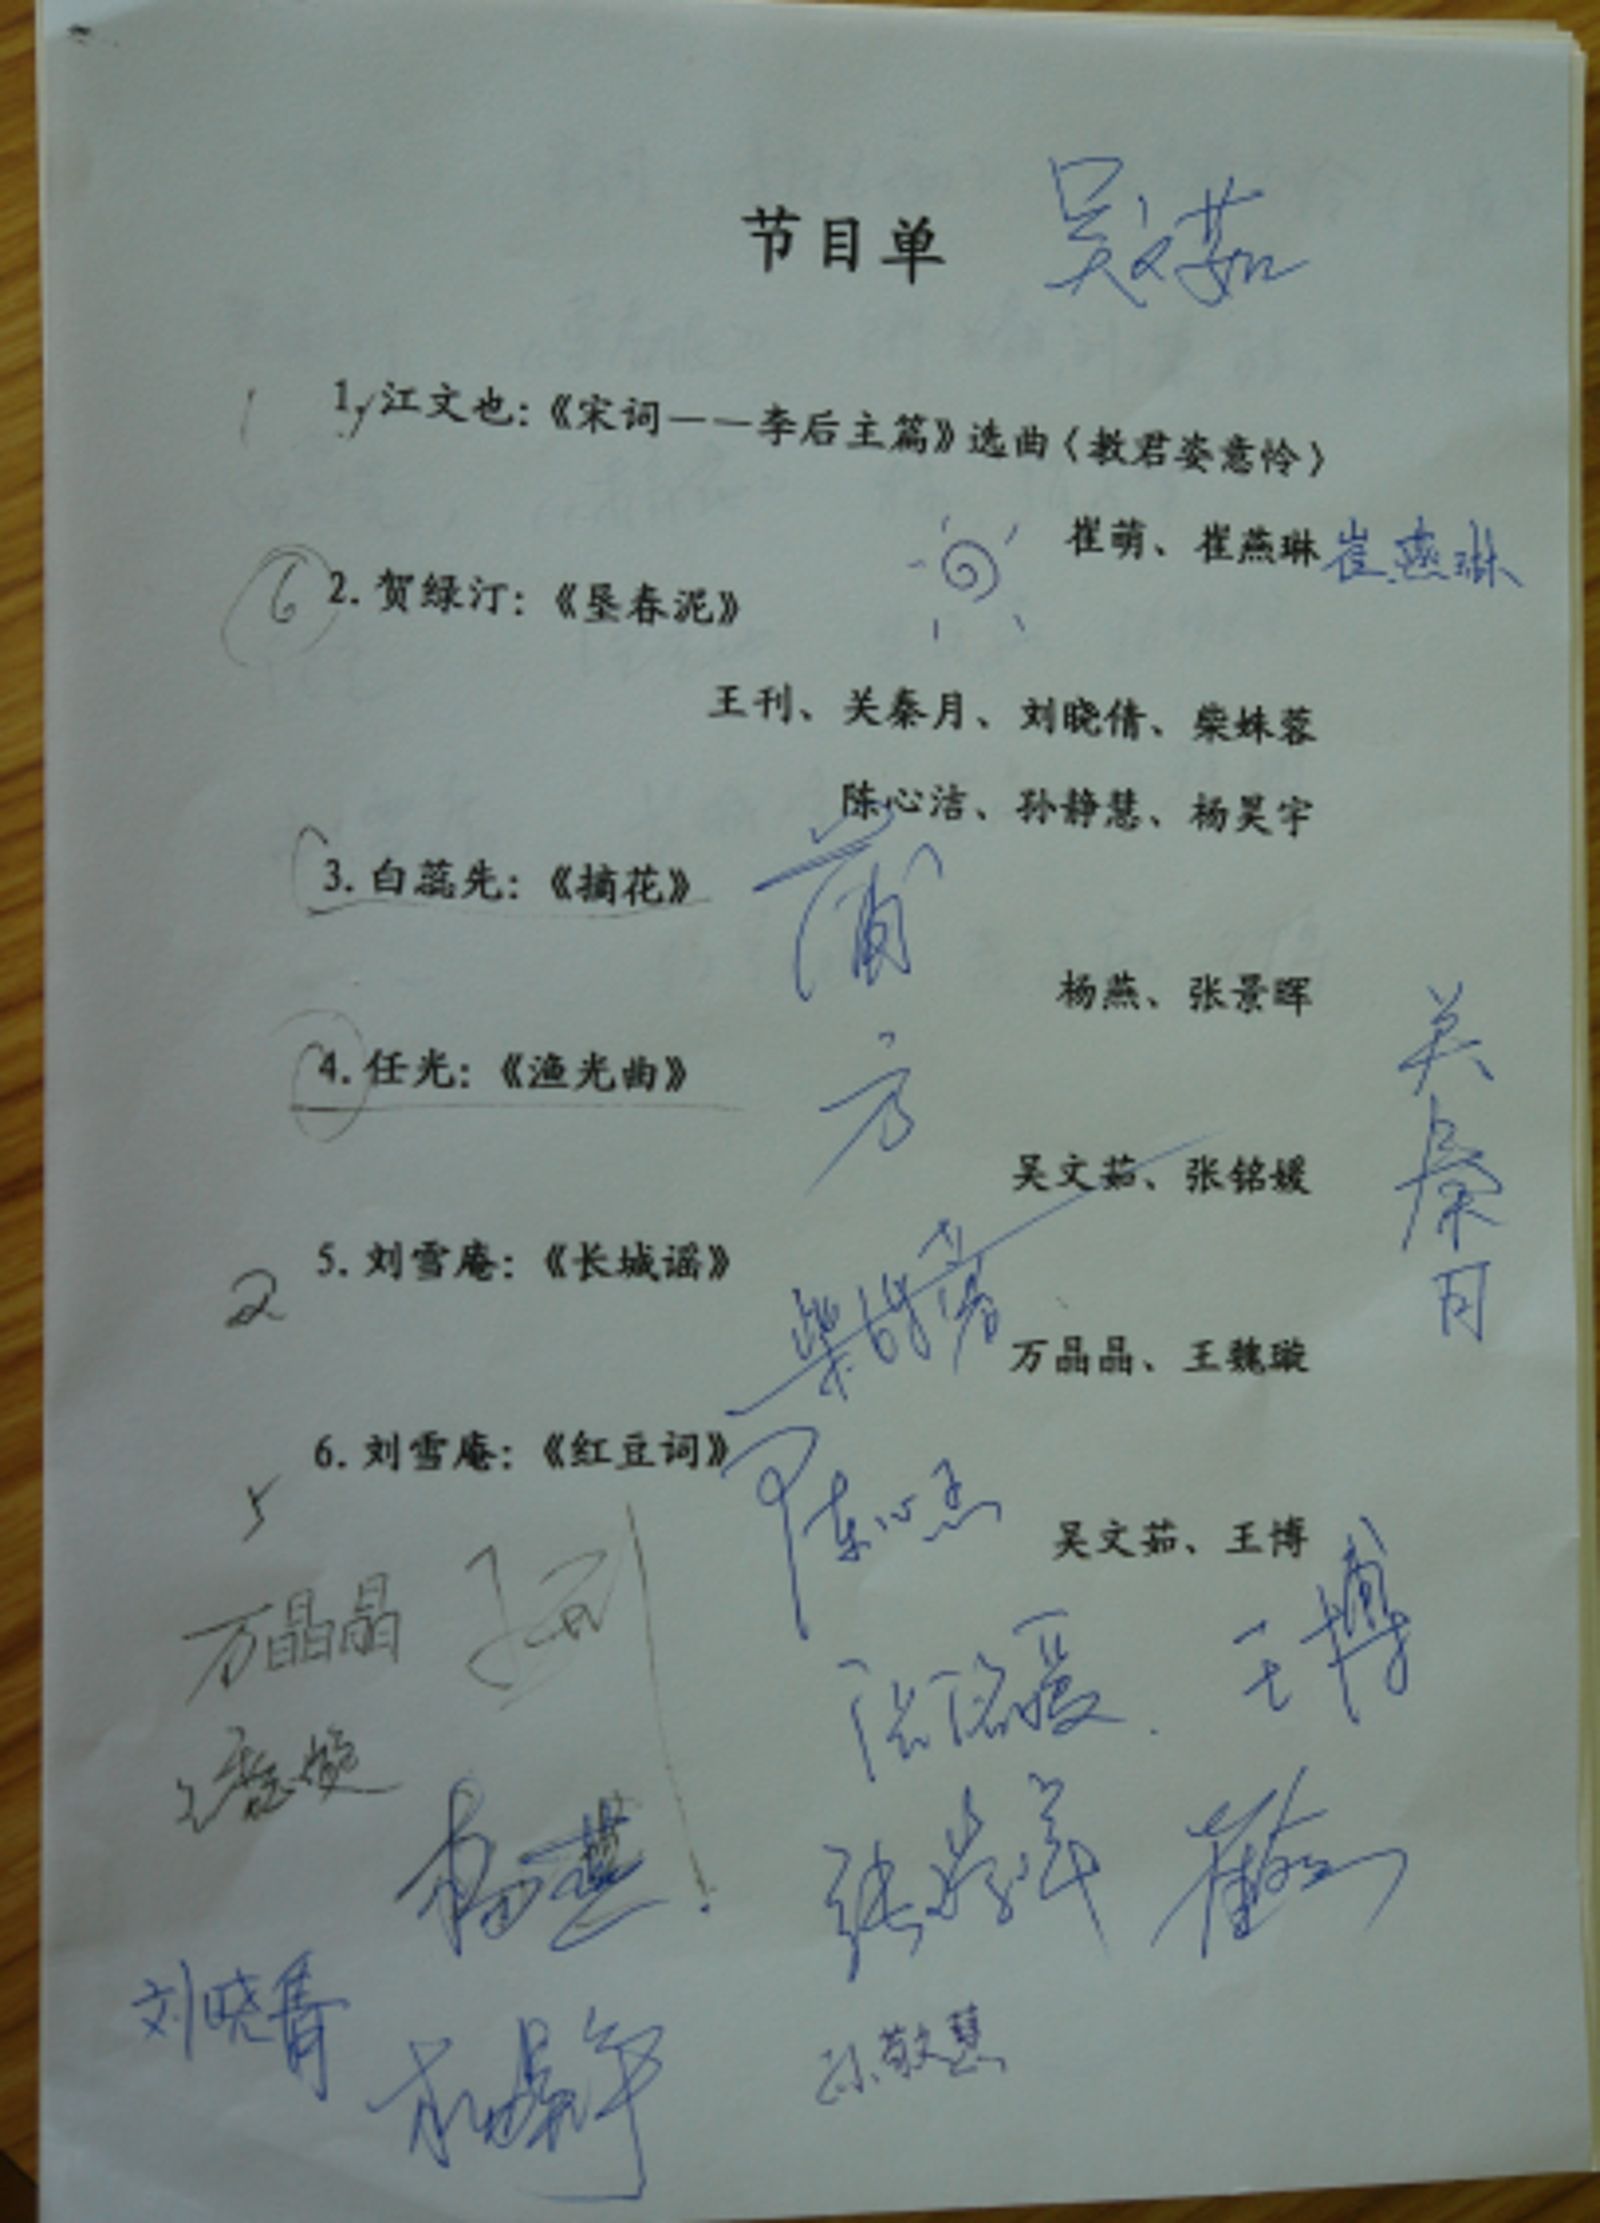 节目单 吴文茹
1 1, 江文也：《宋词——李后主篇》选曲〈教君姿意怜〉
崔萌、崔燕琳 崔燕琳
6 2. 贺绿汀：《垦春泥》
王刊、关秦月、刘晓倩、柴姝蓉
陈心洁、孙静慧、杨昊宇
3. 白蕊先：《摘花》
杨燕、张景晖
4. 任光：《渔光曲》
方
吴文茹、张铭媛
关秦月
5. 刘雪庵：《长城谣》
2
柴姝蓉
万晶晶、王魏璇
6. 刘雪庵：《红豆词》
陈心洁
5
吴文茹、王博
万晶晶 王刊
张铭媛 王博
杨燕
张景晖
刘晓倩
杨昊宇